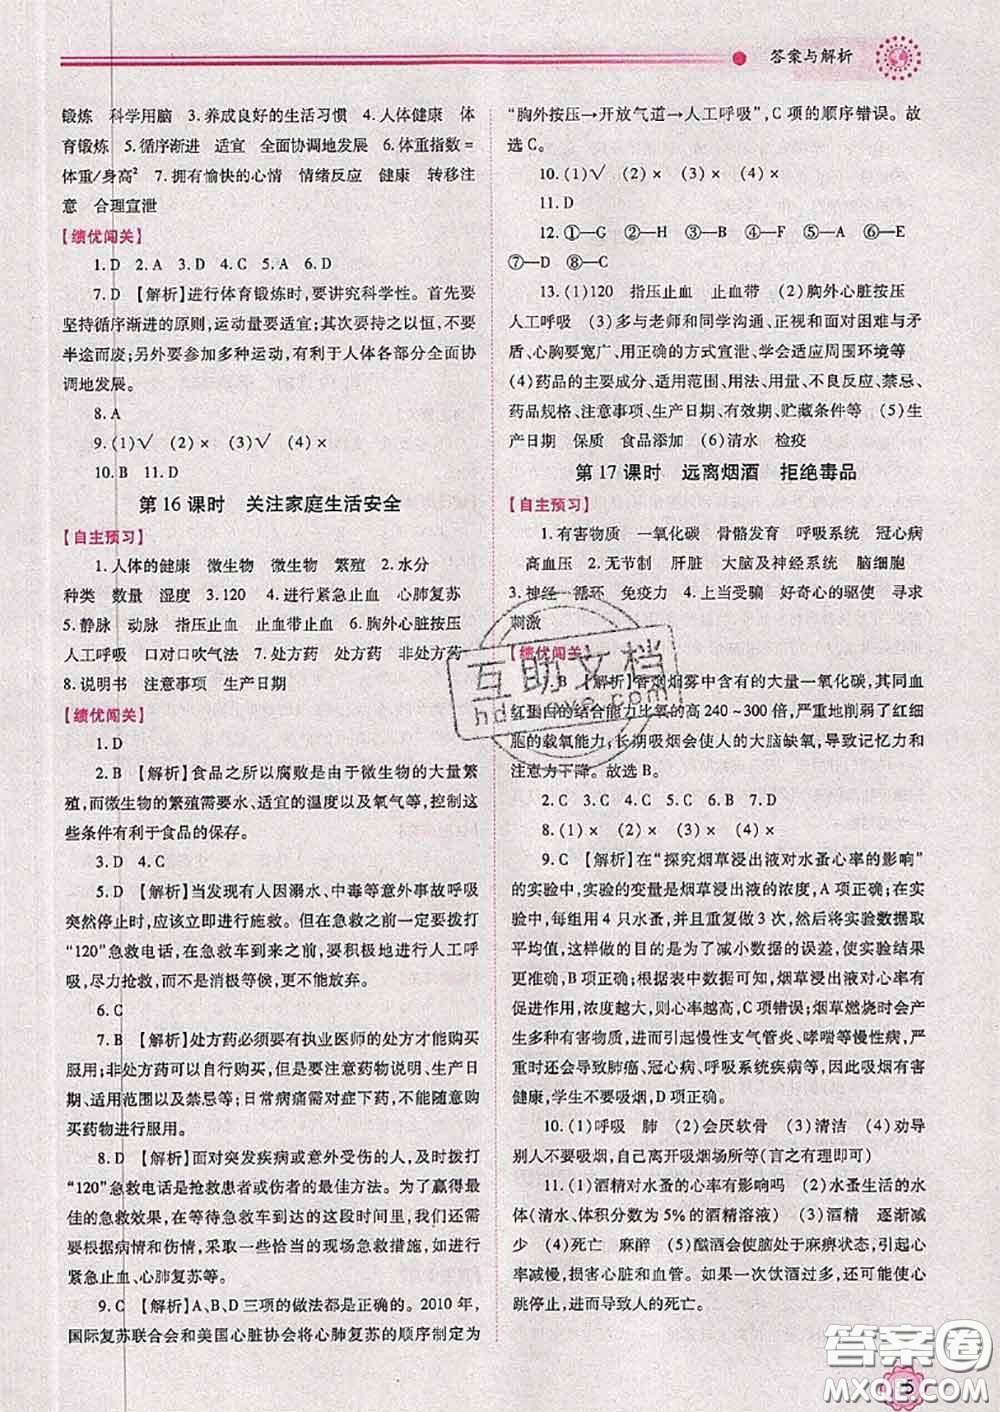 答案与解析
锻炼 科学用脑 3.养成良好的生活习惯 4.人体健康 体
育锻炼 5.循序渐进 适宜 全面协调地发展 6.体重指数=
体重/身高² 7.拥有愉快的心情 情绪反应 健康 转移注
意 合理宣泄
【绩优闯关】
1.D 2.A 3.D 4.C 5.A 6.D
7.D 【解析】进行体育锻炼时,要讲究科学性。首先要
坚持循序渐进的原则,运动量要适宜;其次要持之以恒,不要
半途而废;另外要参加多种运动,有利于人体各部分全面协
调地发展。
8.A
9.(1)√ (2)× (3)√ (4)×
10.B 11.D
第16课时 关注家庭生活安全
【自主预习】
1.人体的健康 微生物 微生物 繁殖 2.水分
种类 数量 湿度 3.120 4.进行紧急止血 心肺复苏
5.静脉 动脉 指压止血 止血带止血 6.胸外心脏按压
人工呼吸 口对口吹气法 7.处方药 处方药 非处方药
8.说明书 注意事项 生产日期
【绩优闯关】
1.D
2.B 【解析】食品之所以腐败是由于微生物的大量繁
殖,而微生物的繁殖需要水、适宜的温度以及氧气等,控制这
些条件有利于食品的保存。
3.D 4.C
5.D 【解析】当发现有人因溺水、中毒等意外事故呼吸
突然停止时,应该立即进行施救。但在急救前一定要拨打
“120”急救电话,在急救车到来之前,要积极地进行人工呼
吸,尽力抢救,而不是消极等候,更不能放弃。
6.C
7.B 【解析】处方药必须要有执业医师的处方才能购买
服用;非处方药可以自行购买,但是要注意药物说明、生产日
期、适用范围以及禁忌等;日常病痛需对症下药,不能随意购
买药物进行服用。
8.D 【解析】面对突发疾病或意外受伤的人,及时拨打
“120”急救电话是抢救患者或伤者的最佳方法。为了赢得最
佳的急救效果,在等待急救车到达的这段时间里,我们还需
要根据病情和伤情,采取一些恰当的现场急救措施,如进行
紧急止血、心肺复苏等。
9.C 【解析】A、B、D三项的做法都是正确的。2010年,
国际复苏联合会和美国心脏协会将心肺复苏的顺序制定为
“胸外按压→开放气道→人工呼吸”,C项的顺序错误。故
选C。
10.(1)√ (2)× (3)× (4)×
11.D
12.①—G ②—H ③—B ④—F ⑤—A ⑥—E
⑦—D ⑧—C
13.(1)120 指压止血 止血带 (2)胸外心脏按压
人工呼吸 (3)多与老师和同学沟通、正视和面对困难与矛
盾、心胸要宽广、用正确的方式宣泄、学会适应周围环境等
(4)药品的主要成分、适用范围、用法、用量、不良反应、禁忌、
药品规格、注意事项、生产日期、有效期、贮藏条件等 (5)生
产日期 保质 食品添加 (6)清水 检疫
第17课时 远离烟酒 拒绝毒品
【自主预习】
1.有害物质 一氧化碳 骨骼发育 呼吸系统 冠心病
高血压 2.无节制 肝脏 大脑及神经系统 脑细胞
3.神经 循环 免疫力 4.上当受骗 好奇心的驱使 寻求
刺激
【绩优闯关】
1.B 【解析】香烟烟雾中含有的大量一氧化碳,其同血
红蛋白的结合能力比氧的高240~300倍,严重地削弱了红细
胞的载氧能力;长期吸烟会使人的大脑缺氧,导致记忆力和
注意力下降。故选B。
2.C 3.C 4.A 5.C 6.B 7.D
8.(1)√ (2)× (3)× (4)√
9.C 【解析】在“探究烟草浸出液对水蚤心率的影响”
的实验中,实验的变量是烟草浸出液的浓度,A项正确;在实
验中,每组用4只水蚤,并且重复做3次,然后实验数据取
平均值,这样做的目的是为了减小数据的误差,使实验结果
更准确,B项正确;根据表中数据可知,烟草浸出液对心率有
促进作用,浓度越大,则心率越高,C项错误;烟草燃烧时会产
生多种有害物质,进而引起慢性支气管炎、哮喘等慢性病,严
重时还会导致肺癌、冠心病、呼吸系统疾病等,因此吸烟有害
健康,学生不要吸烟,D项正确。
10.(1)呼吸 肺 (2)会厌软骨 (3)清洁 (4)劝导
别人不要吸烟,自己离开吸烟场所等(言之有理即可)
11.(1)酒精对水蚤的心率有影响吗 (2)水蚤生活的水
体(清水、体积分数为5%的酒精溶液) (3)酒精 逐渐减
少 (4)死亡 麻醉 (5)酗酒会使脑处于麻痹状态,引起心
率减慢,损害心脏和血管。如果一次饮酒过多,还可能使心
跳停止,进而导致人的死亡。
互助文档
答案圈
MXQE.COM
5